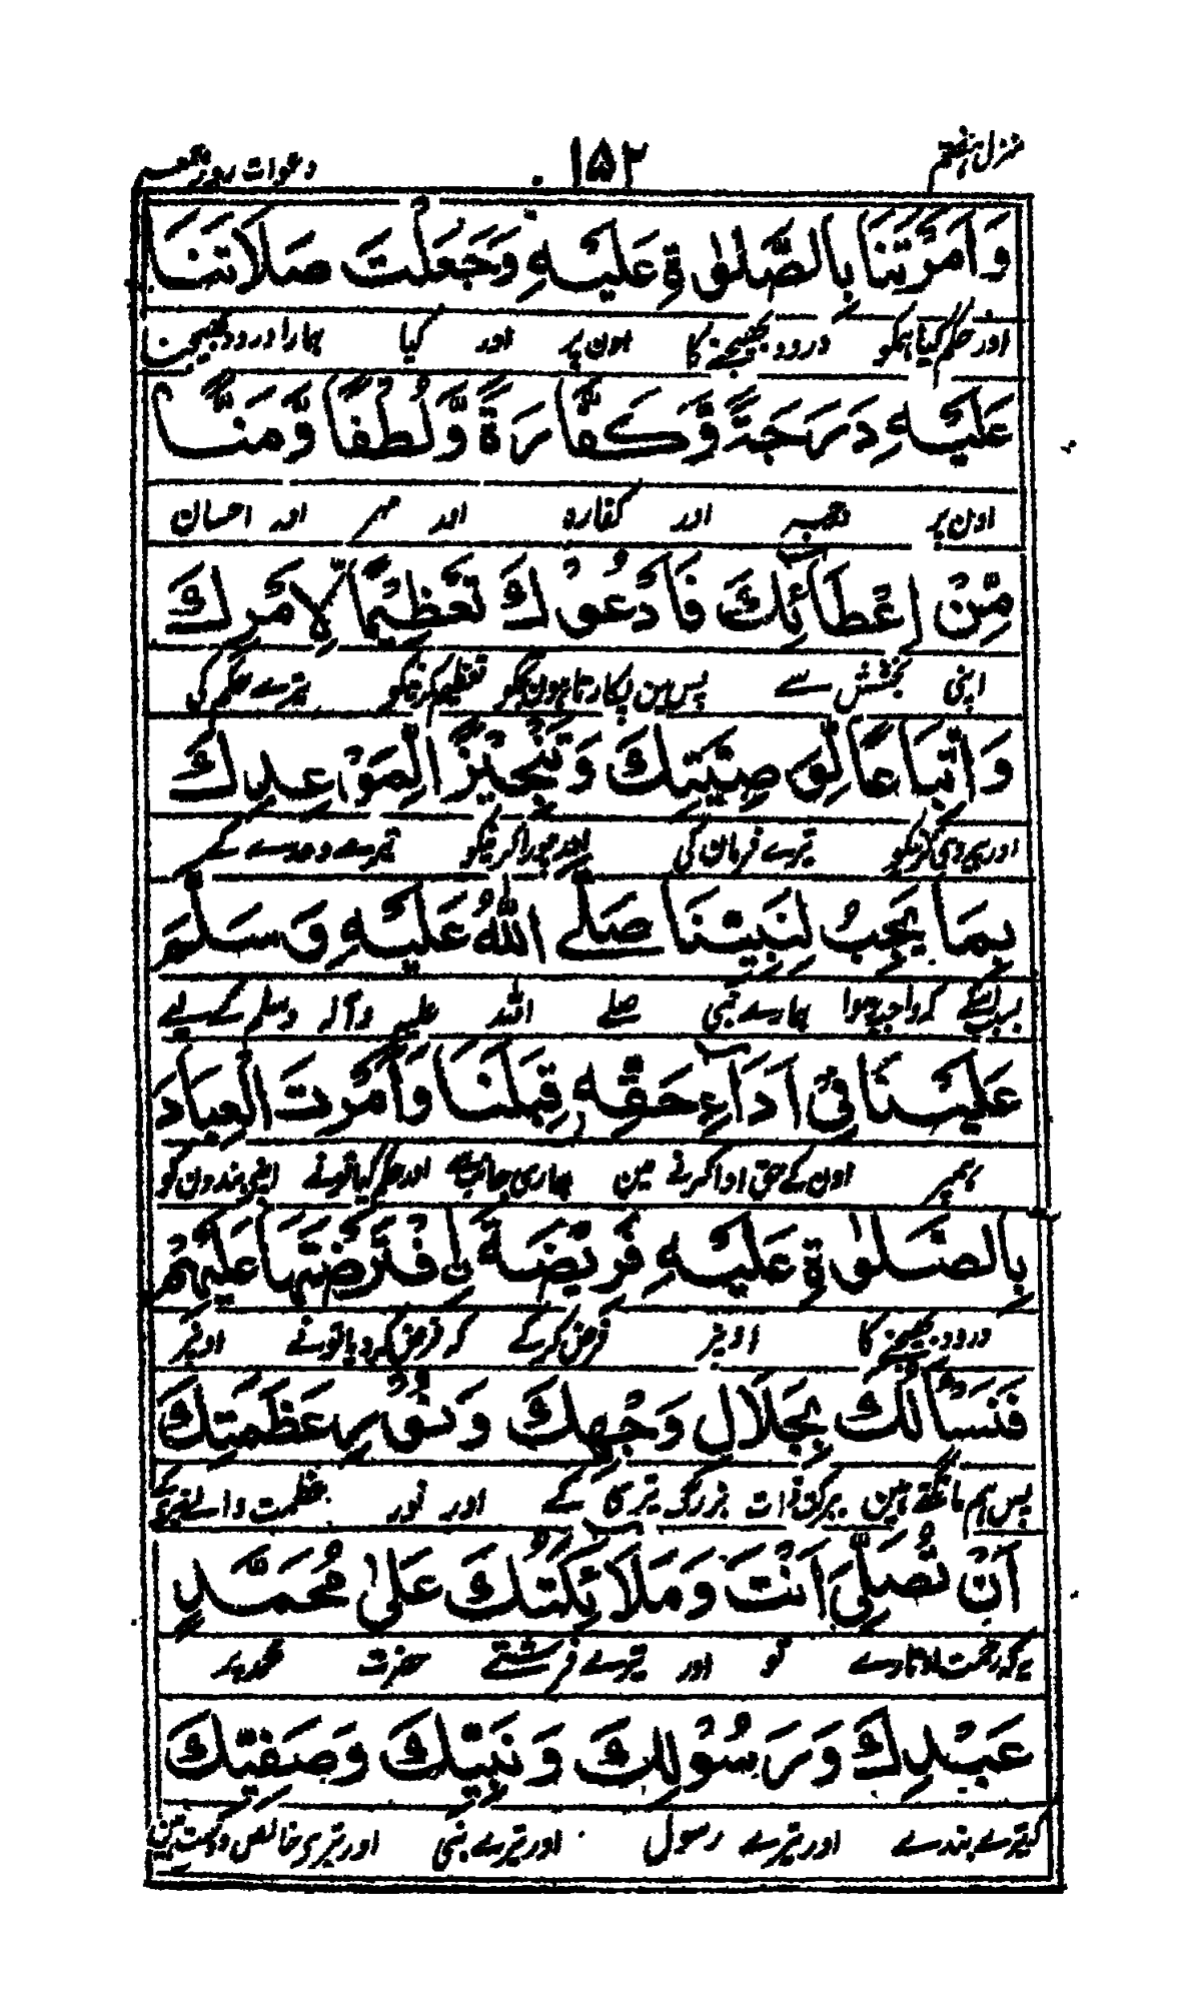 منزل ہفتم ۱۵۲ دعوات روز جمعہ
وَاَمَرْتَنَا بِالصَّلٰوةِ عَلَيْهِ وَجَعَلْتَ صَلَاتَنَا
اور حکم کیا ہمکو درود بھیجنے کا اون پر اور کیا ہمارا درود بھیجنا
عَلَيْهِ دَرَجَةً وَّكَفَّارَةً وَّلُطْفًا وَّمَنًّا
اون پر اور کفارہ اور مہر اور احسان
مِّنْ اِعْطَآئِكَ فَاَدْعُوْكَ تَعْظِيْمًا لِّاَمْرِكَ
اپنی بخشش سے پس مین پکارتا ہون تجکو تعظیم کرتیکو تیرے حکم کی
وَاتِّبَاعًا لِّوَصِيَّتِكَ وَتَنْجِيْزًا لِّمَوَاعِدِكَ
اور پیروی کرنیکو تیرے فرمان کی اور پورا کرنیکو تیرے وعدے کے
بِمَا يَجِبُ لِنَبِيِّنَا صَلَّے اللّٰهُ عَلَيْهِ وَسَلَّمَ
بسبب اسکے کہ واجب ہوا ہمارے نبی صلے اللہ علیہ وآلہ وسلم کے لیے
عَلَيْنَا فِيْ اَدَآءِ حَقِّهٖ قِبَلَنَا وَاَمَرْتَ الْعِبَادَ
ہمپر اون کے حق ادا کرنے مین ہماری جانب سے اور حکم کیا تونے اپنی بندون کو
بِالصَّلٰوةِ عَلَيْهِ فَرِيْضَةً اِفْتَرَضْتَهَا عَلَيْهِمْ
درود بھیجنے کا اونپر فرض کرکے کہ فرض کر دیا تونے اونپر
فَنَسْاَلُكَ بِجَلَالِ وَجْهِكَ وَنُوْرِ عَظَمَتِكَ
پس ہم مانگتے ہین ببرکت ذات بزرگ تیری کے اور نور عظمت والے تیرے کے
اَنْ تُصَلِّيَ اَنْتَ وَمَلَآئِكَتُكَ عَلٰى مُحَمَّدٍ
یہ کہ رحمت اوتارے تو اور تیرے فرشتے حضرت محمد پر
عَبْدِكَ وَرَسُوْلِكَ وَنَبِيِّكَ وَصَفِيِّكَ
کہ تیرے بندے اور تیرے رسول اور تیرے نبی اور تیری خالص دوست ہین